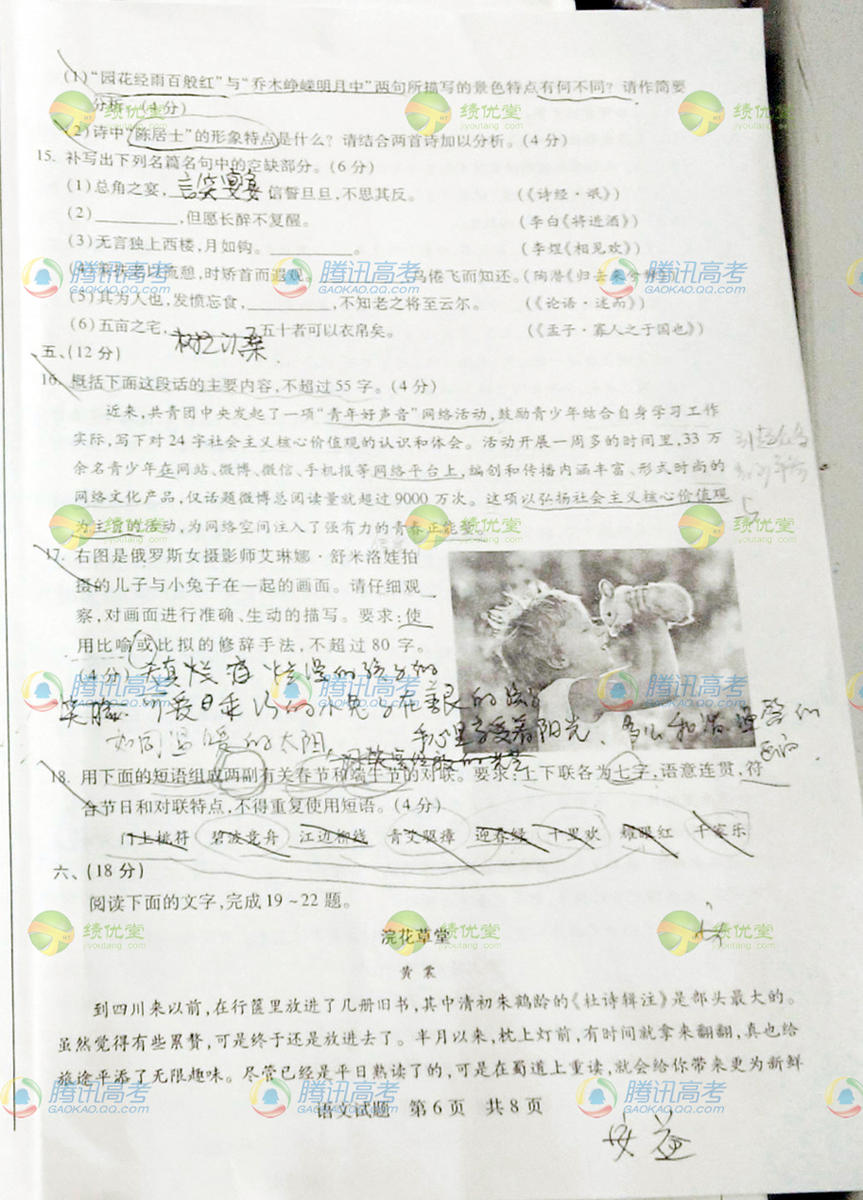 (1)“园花经雨百般红”与“乔木峥嵘明月中”两句所描写的景色特点有何不同？请作简要
分析。(4分)
(2)诗中“陈居士”的形象特点是什么？请结合两首诗加以分析。(4分)
15. 补写出下列名篇名句中的空缺部分。(6分)
(1)总角之宴，言笑晏晏 信誓旦旦，不思其反。 (《诗经·氓》)
(2)__________，但愿长醉不复醒。 (李白《将进酒》)
(3)无言独上西楼，月如钩。__________。 (李煜《相见欢》)
(4)策扶老以流憩，时矫首而遐观。__________，鸟倦飞而知还。(陶潜《归去来兮辞》)
(5)其为人也，发愤忘食，__________，不知老之将至云尔。 (《论语·述而》)
(6)五亩之宅，树之以桑，五十者可以衣帛矣。 (《孟子·寡人之于国也》)
五、(12分)
16. 概括下面这段话的主要内容，不超过55字。(4分)
近来，共青团中央发起了一项“青年好声音”网络活动，鼓励青少年结合自身学习工作
实际，写下对24字社会主义核心价值观的认识和体会。活动开展一周多的时间里，33万
余名青少年在网站、微博、微信、手机报等网络平台上，编创和传播内涵丰富、形式时尚的
网络文化产品，仅话题微博总阅读量就超过9000万次。这项以弘扬社会主义核心价值观
为主责的活动，为网络空间注入了强有力的青春正能量。
17. 右图是俄罗斯女摄影师艾琳娜·舒米洛娃拍
摄的儿子与小兔子在一起的画面。请仔细观
察，对画面进行准确、生动的描写。要求：使
用比喻或比拟的修辞手法，不超过80字。
(4分)天真烂漫
笑脸
如同温暖的太阳
阳光
18. 用下面的短语组成两副有关春节和端午节的对联。要求：上下联各为七字，语意连贯，符
合节日和对联特点，不得重复使用短语。(4分)
门上桃符 碧波竞舟 江边柳线 青艾驱瘴 迎春绿 十里欢 耀眼红 千家乐
六、(18分)
阅读下面的文字，完成19~22题。
浣花草堂
黄裳
到四川来以前，在行箧里放进了几册旧书，其中清初朱鹤龄的《杜诗辑注》是部头最大的。
虽然觉得有些累赘，可是终于还是放进去了。半月以来，枕上灯前，有时间就拿来翻翻，真也给
旅途平添了无限趣味。尽管已经是平日熟读了的，可是在蜀道上重读，就会给你带来更为新鲜
语文试题 第6页 共8页
绩优堂
jiyoutang.com
腾讯高考
GAOKAO.QQ.COM